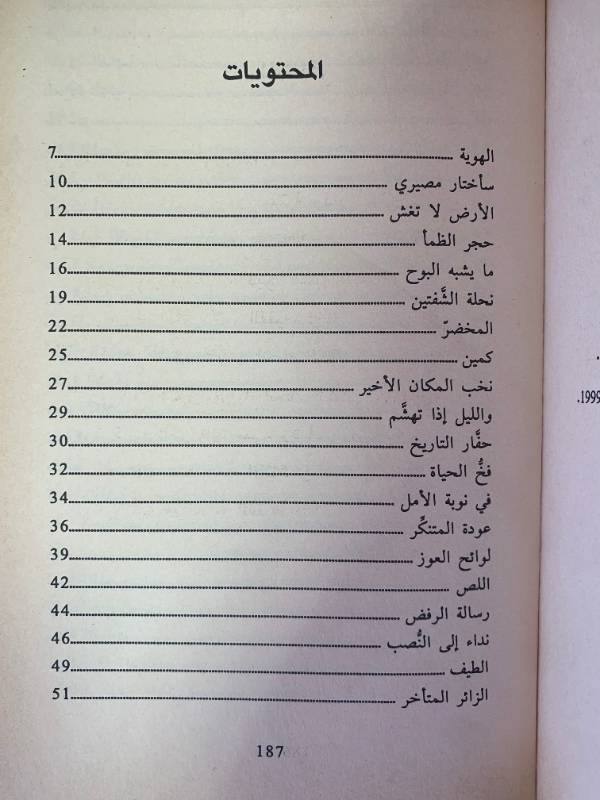 المحتويات
الهوية 7
سأختار مصيري 10
الأرض لا تغش 12
حجر الظمأ 14
ما يشبه البوح 16
نحلة الشَّفتين 19
المخضرّ 22
كمين 25
نخب المكان الأخير 27
والليل إذا تهشَّم 29
حفَّار التاريخ 30
فخُّ الحياة 32
في نوبة الأمل 34
عودة المتنكِّر 36
لوائح العوز 39
اللص 42
رسالة الرفض 44
نداء إلى النُّصب 46
الطيف 49
الزائر المتأخر 51
187
1999.